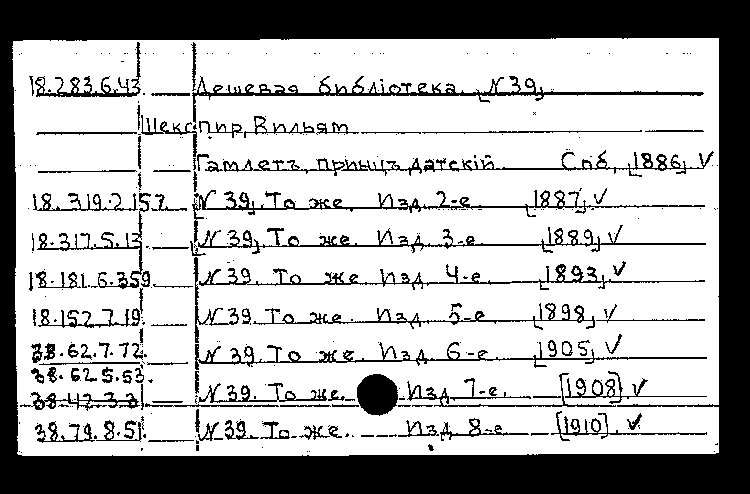 18.283.6.43. Дешевая библіотека. [N 39].
Шекспир, Вильям
Гамлетъ, принцъ датскій. Спб, [1886] V
18.319.2.157. N 39]. То же. Изд. 2-е. [1887] V
18.317.5.13. [N 39]. То же. Изд. 3-е. [1889] V
18.181.6.359. N 39. То же. Изд. 4-е. [1893] V
18.152.7.19. N 39. То же. Изд. 5-е. [1898] V
38.62.7.72. N 39. То же. Изд. 6-е. [1905] V
38.62.5.53.
38.42.3.3. N 39. То же. Изд. 7-е. [1908]. V
38.79.8.51. N 39. То же. Изд. 8-е [1910]. V